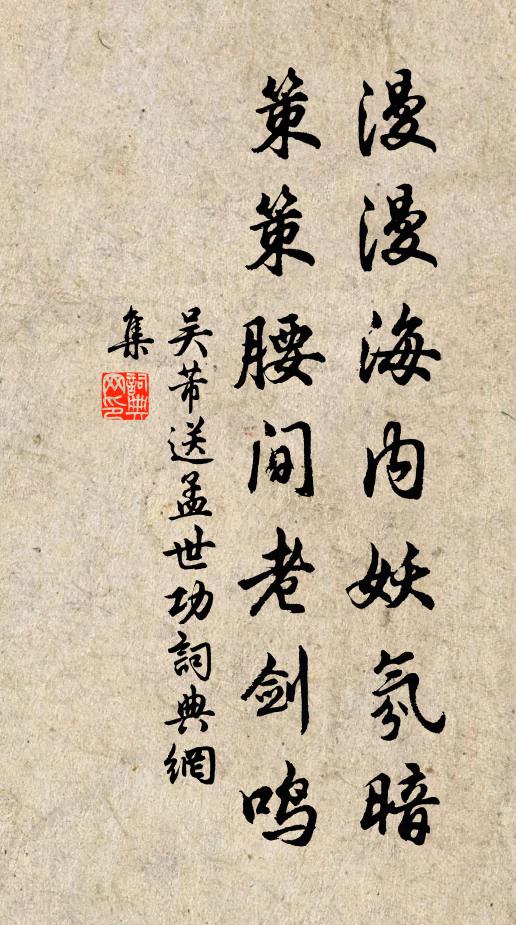 漫漫海内妖氛暗
策策腰间老剑鸣
吴芾送孟世功詞典網
集
詞典
网印